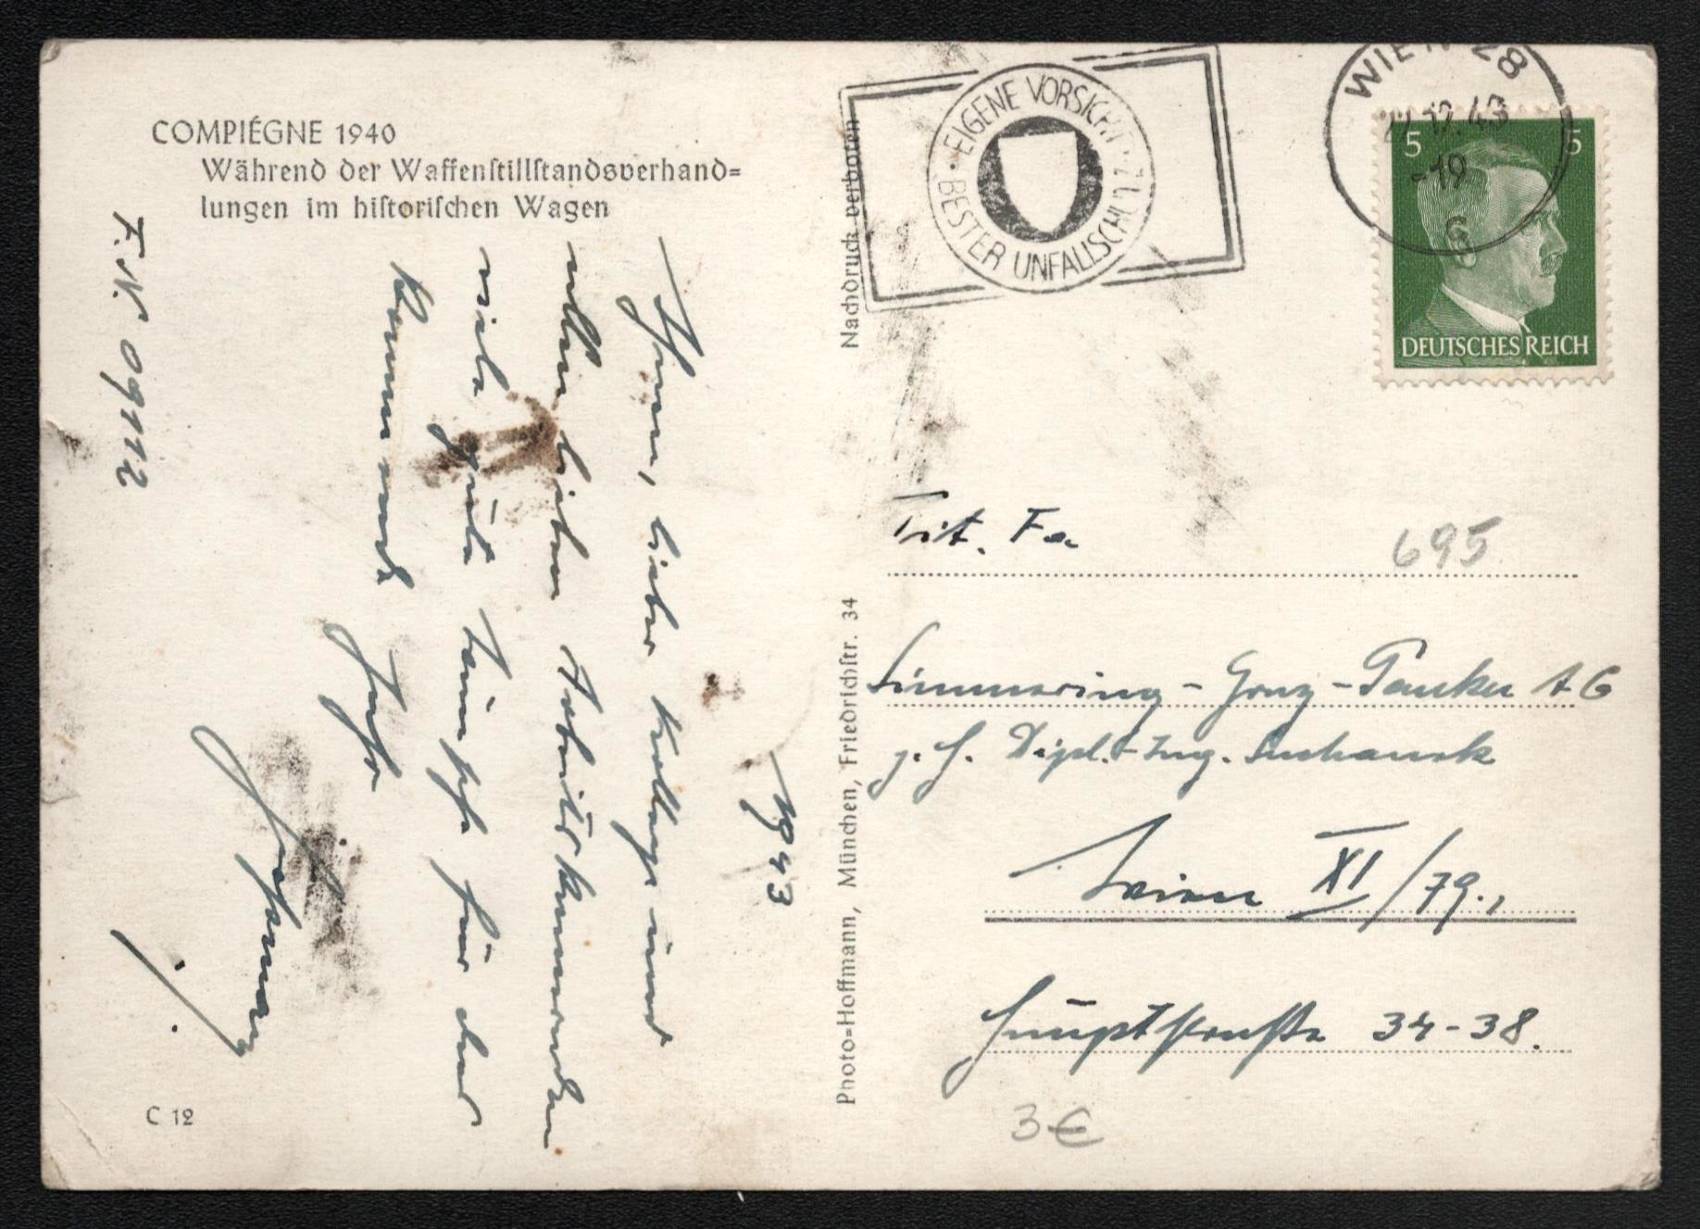 COMPIÉGNE 1940
Während der Waffenstillstandsverhand=
lungen im historischen Wagen
F. N. 09112
Ihnen, lieber Kollege und
allen lieben Arbeitskameraden
viele gute Wünsche für das
kommende Jahr
1943
C 12
Nachdruck verboten
Photo=Hoffmann, München, Friedrichstr. 34
EIGENE VORSICHT
BESTER UNFALLSCHUTZ
WIEN 28
12.43
-19
6
5 5
DEUTSCHES REICH
Tit. Fa.
695
Simmering-Graz-Pauker AG
z. H. Dipl.-Ing.
Wien XI/79.,
Hauptstraße 34-38.
3€